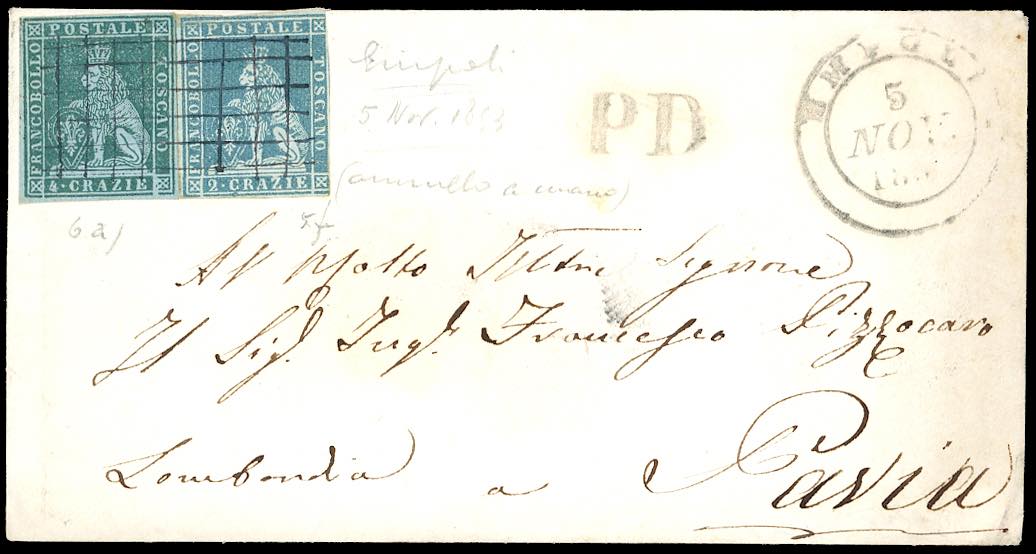 POSTALE
FRANCOBOLLO
TOSCANO
4·CRAZIE
POSTALE
FRANCOBOLLO
TOSCANO
2·CRAZIE
Empoli
5 Nov. 1853
(annullo a mano)
6a)
PD
5
NOV.
18
Al Molto Illtre Signore
Il Sigr. Ingr. Francesco Pizzocaro
Lombardia a Pavia